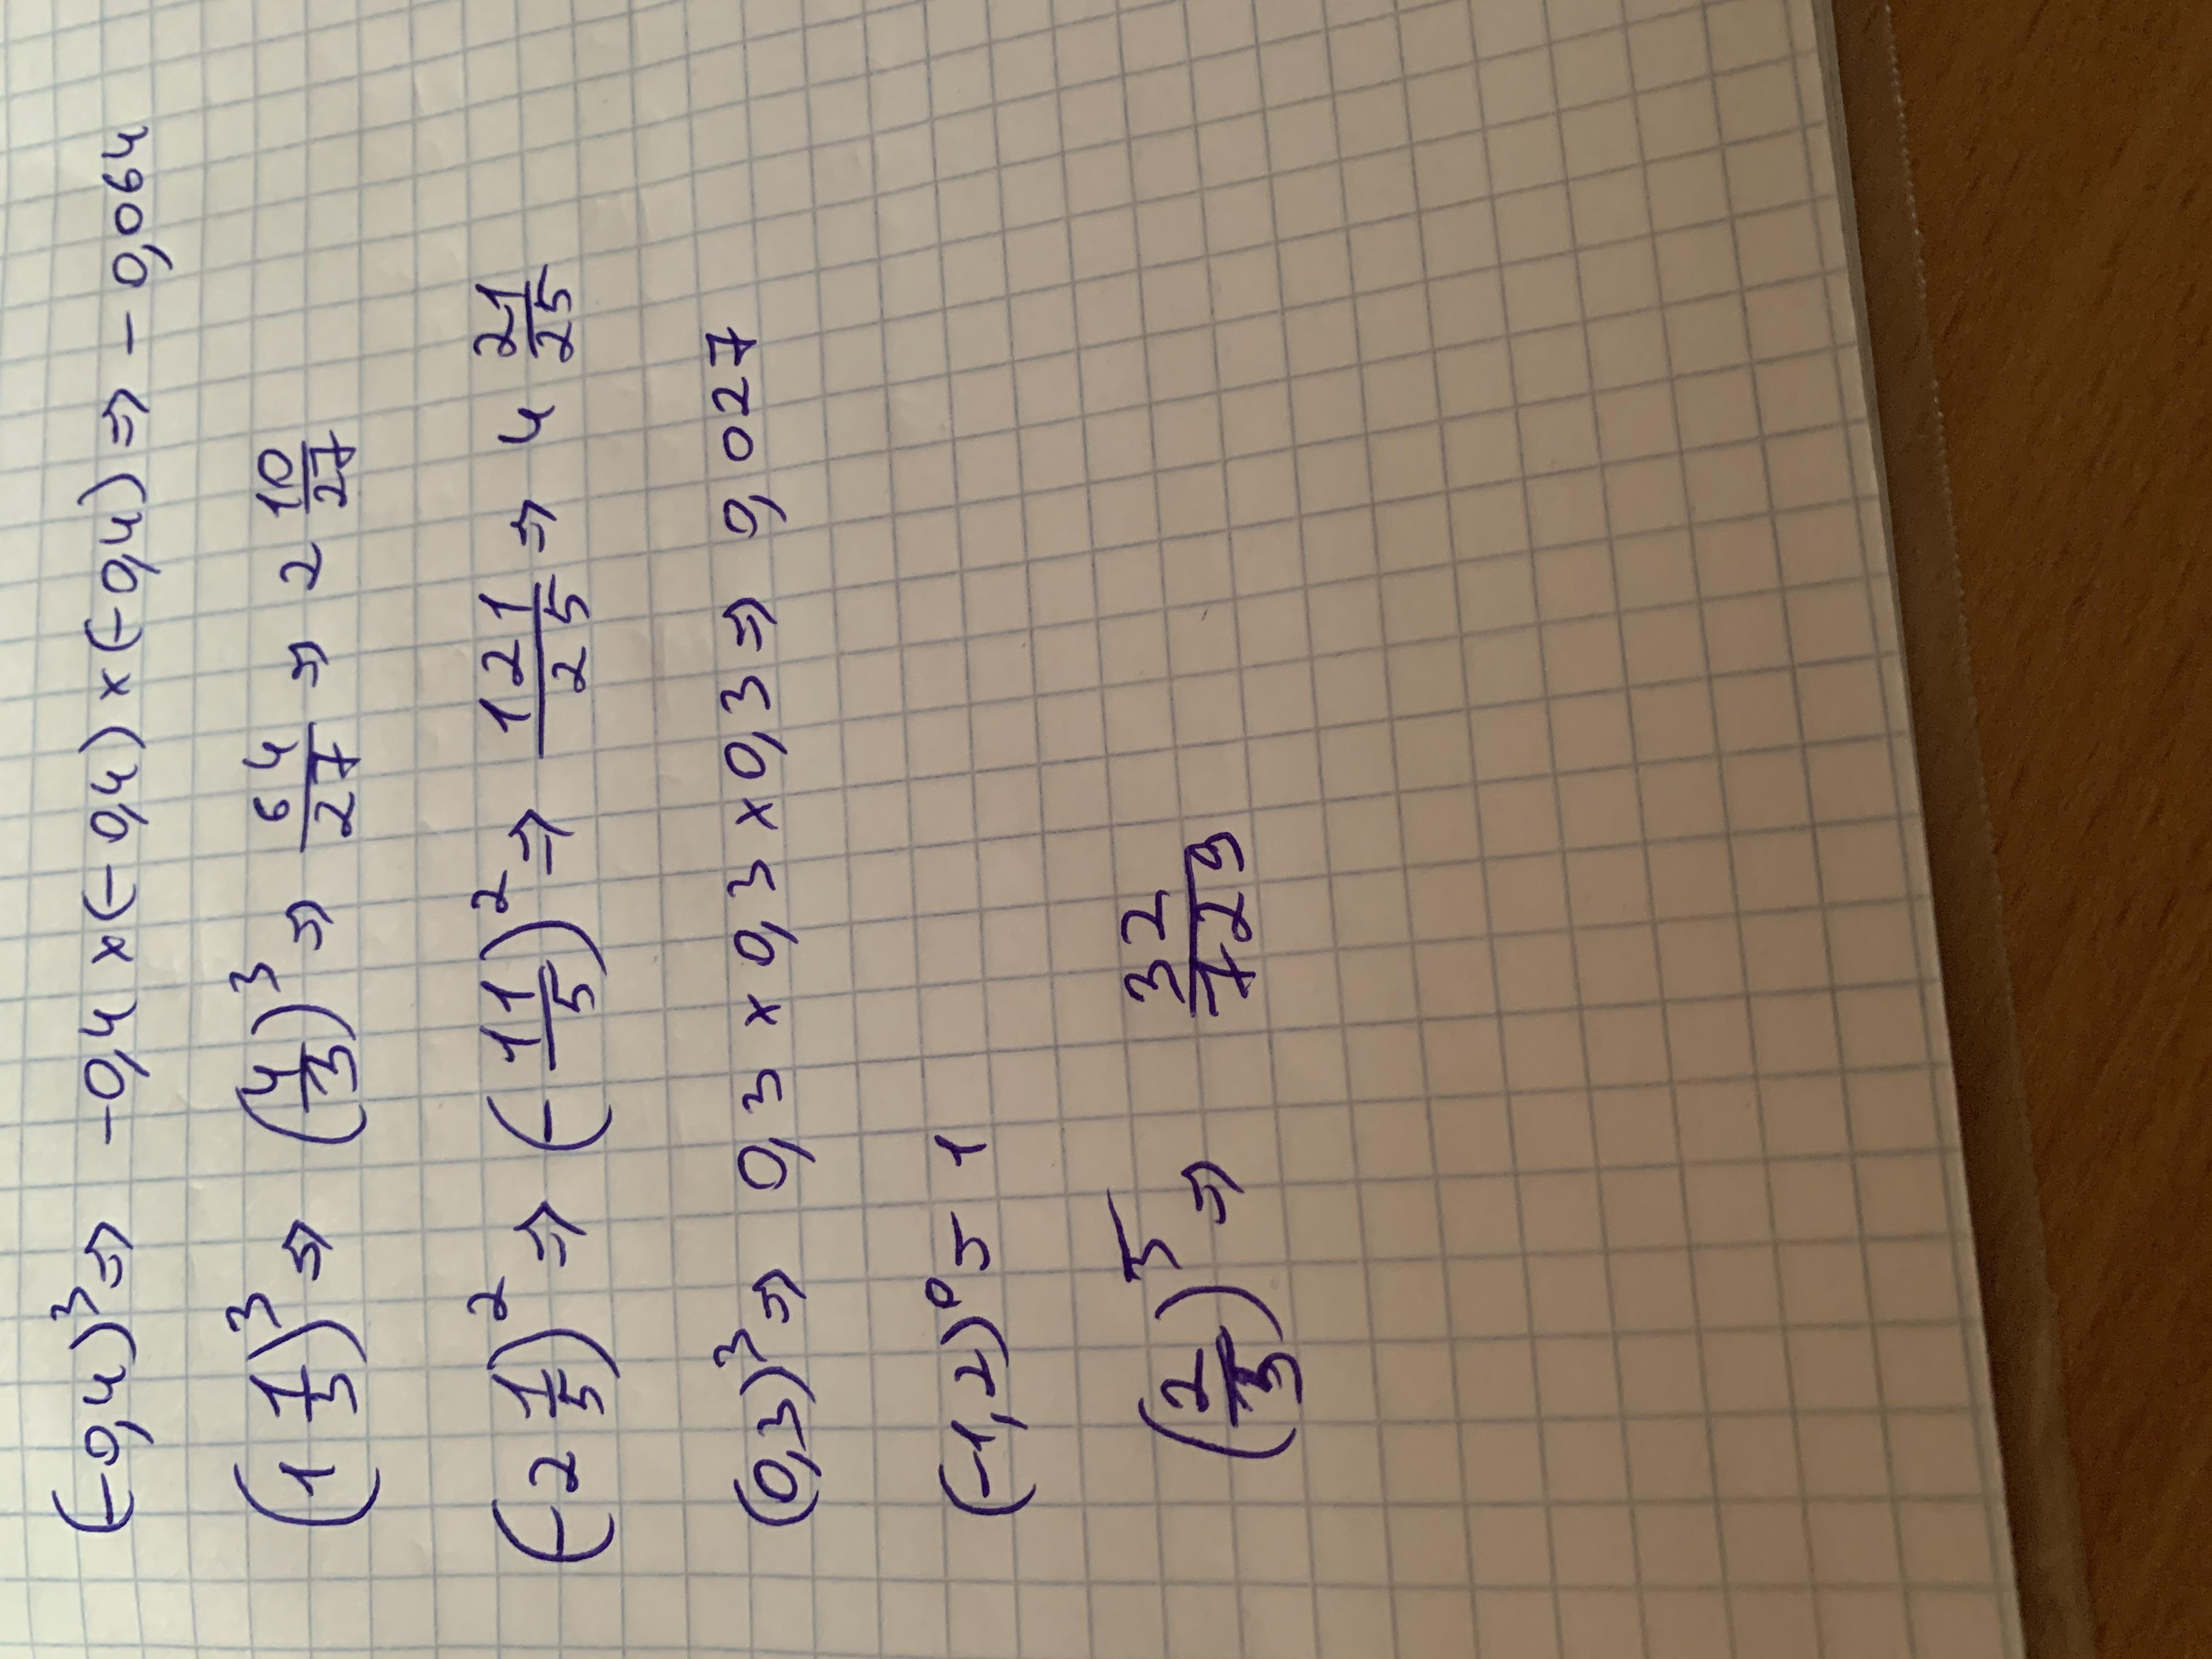 (-0,4)³ => -0,4 x (-0,4) x (-0,4) => -0,064
(1 1/3)³ => (4/3)³ => 64/27 => 2 10/27
(-2 1/5)² => (-11/5)² => 121/25 => 4 21/25
(0,3)³ => 0,3 x 0,3 x 0,3 => 0,027
(-1,2)⁰ = 1
(2/3)⁵ => 32/729